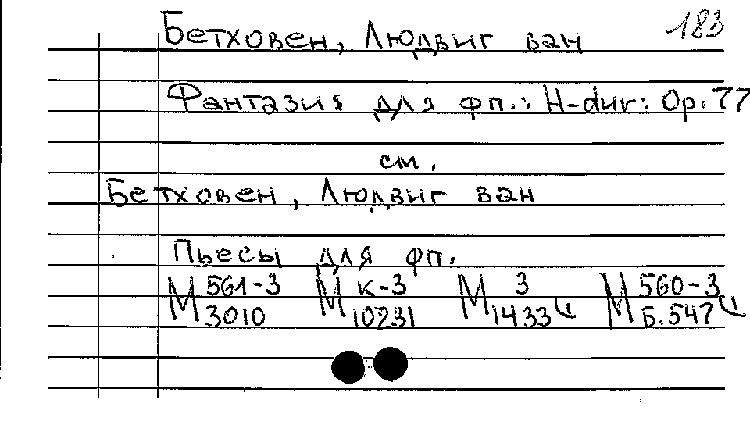 183
Бетховен, Людвиг ван
Фантазия для фп.: H-dur: Op. 77
см.
Бетховен, Людвиг ван
Пьесы для фп.
М 561-3 М К-3 М 3 М 560-3
3010 10231 1433 Б.547